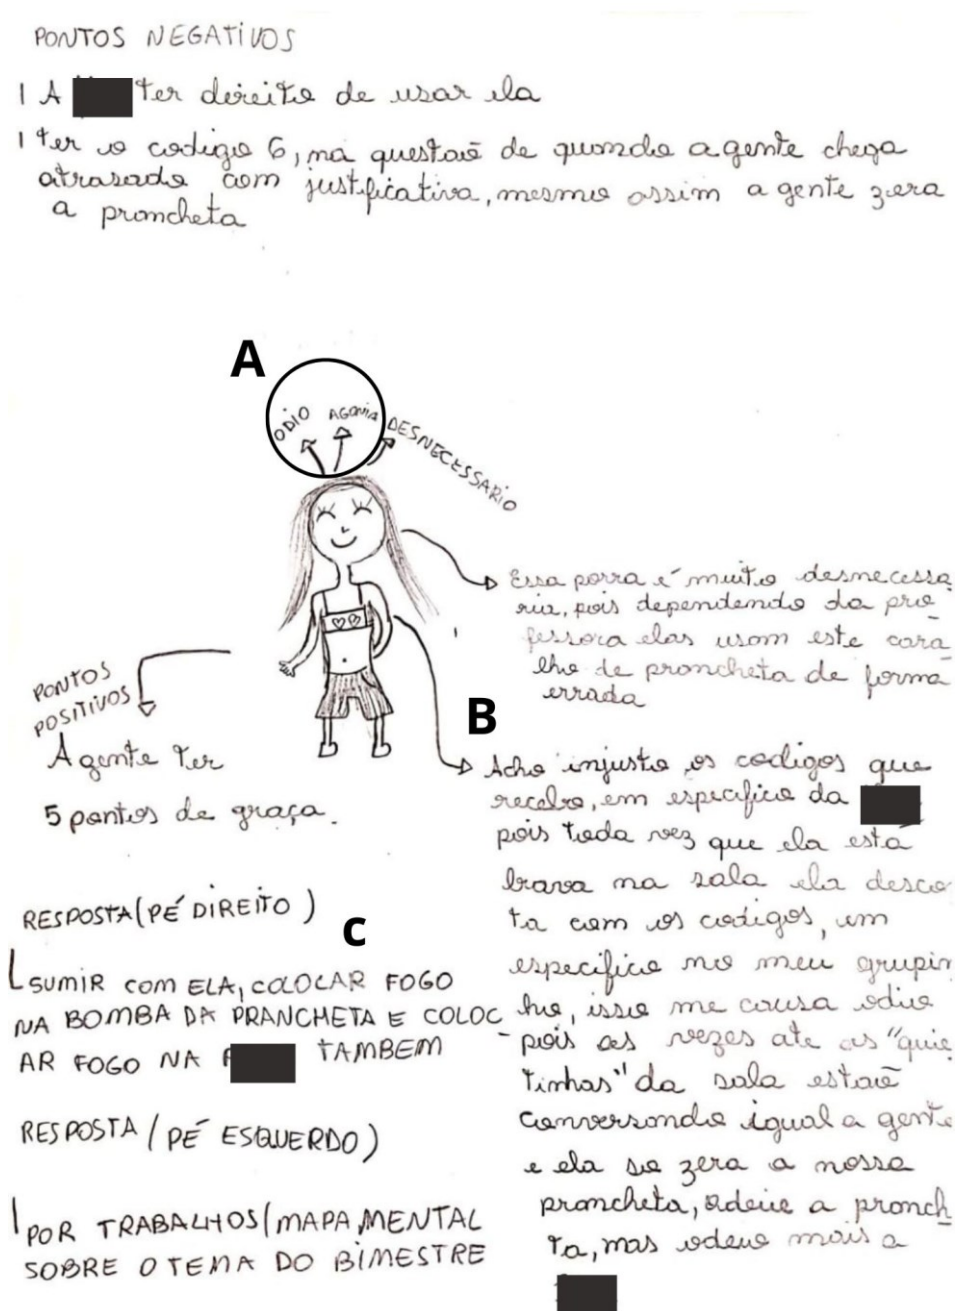 PONTOS NEGATIVOS
A ter direito de usar ela
ter o codigo 6, na questaõ de quando a gente chega
atrasado com justificativa, mesmo assim a gente zera
a prancheta
A
ODIO
AGONIA
DESNECESSARIO
Essa porra é muito desnecessa
ria, pois dependendo da pro
fessora elas usam este cara
lho de prancheta de forma
errada
PONTOS
POSITIVOS
A gente ter
5 pontos de graça.
B
Acho injusto os codigos que
recebo, em especifico da
pois toda vez que ela está
brava na sala ela desco
ta com os codigos, em
especifico no meu grupin
ho, isso me causa odio
pois as vezes ate as "quie
tinhas" da sala estaõ
conversando igual a gente
e ela so zera a nossa
prancheta, odeio a pranch
ta, mas odeio mais a
RESPOSTA (PÉ DIREITO)
C
SUMIR COM ELA, COLOCAR FOGO
NA BOMBA DA PRANCHETA E COLOC
AR FOGO NA TAMBEM
RESPOSTA (PÉ ESQUERDO)
POR TRABALHOS/MAPA MENTAL
SOBRE O TEMA DO BIMESTRE